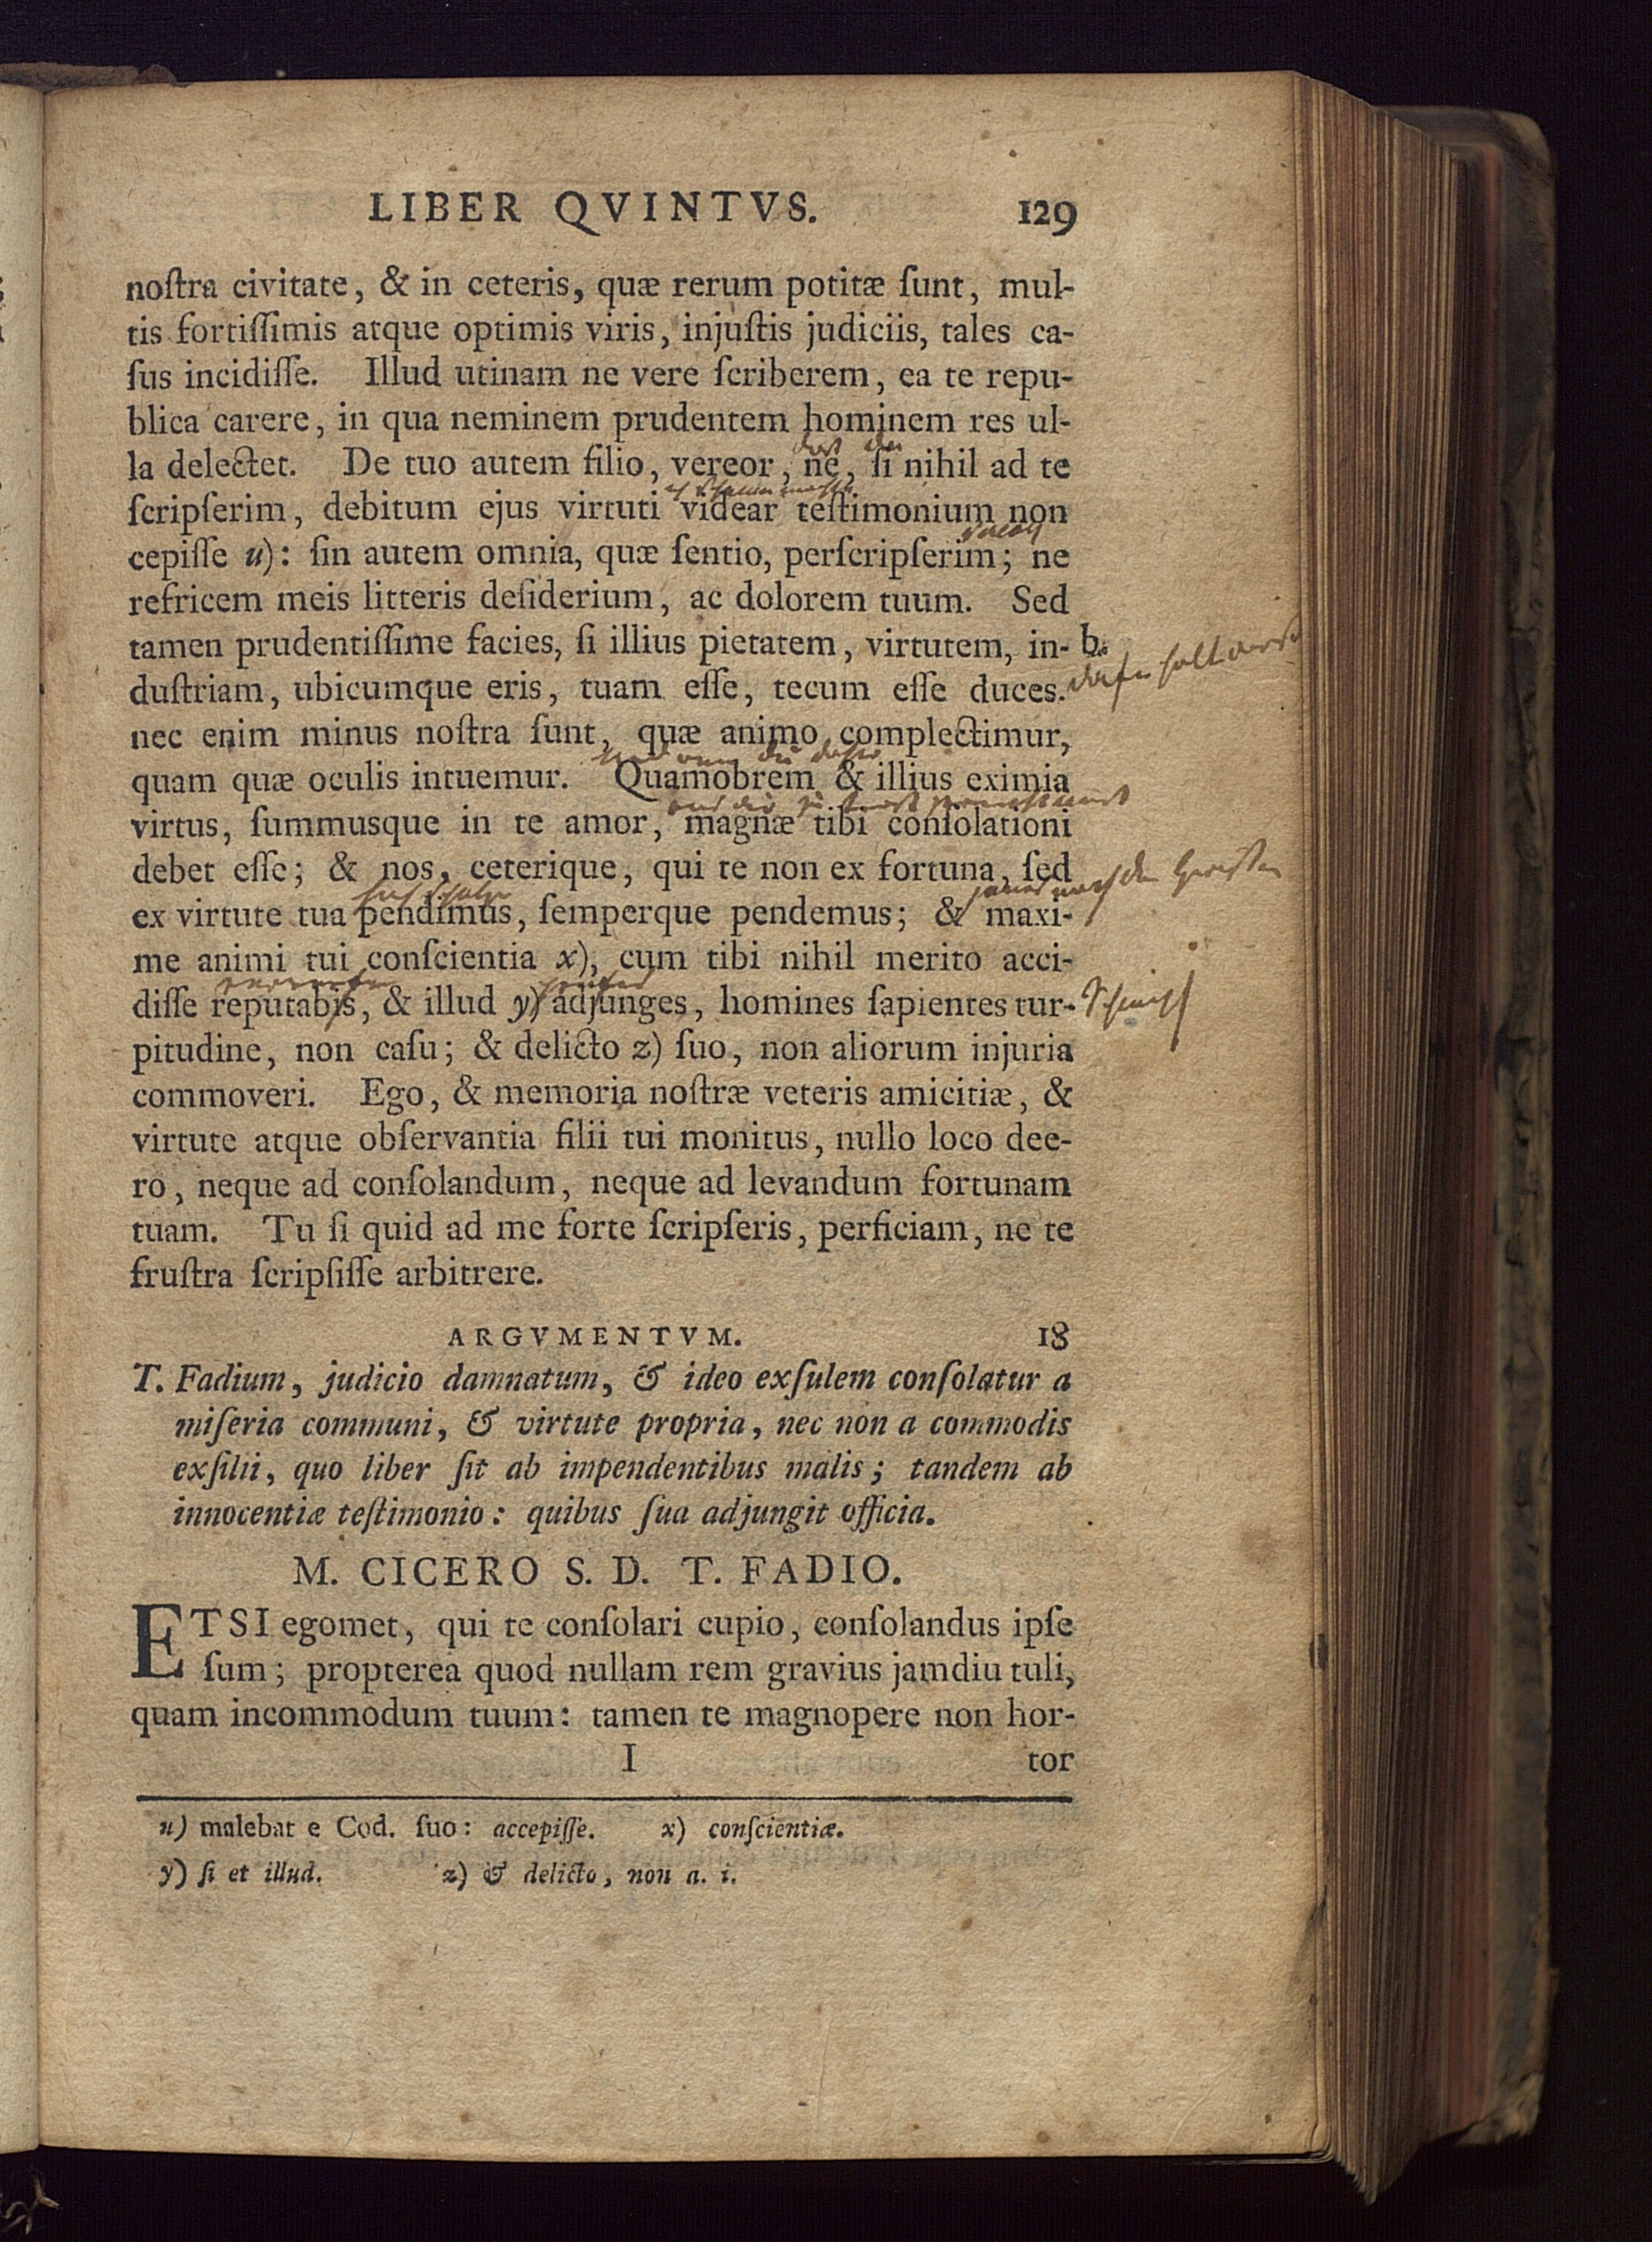 LIBER QVINTVS. 129
noſtra civitate, & in ceteris, quæ rerum potitæ ſunt, mul-
tis fortiſſimis atque optimis viris, injuſtis judiciis, tales ca-
ſus incidiſſe. Illud utinam ne vere ſcriberem, ea te repu-
blica carere, in qua neminem prudentem hominem res ul-
la delectet. De tuo autem filio, vereor, ne, ſi nihil ad te
ſcripſerim, debitum ejus virtuti videar teſtimonium non
cepiſſe u): ſin autem omnia, quæ ſentio, perſcripſerim; ne
refricem meis litteris deſiderium, ac dolorem tuum. Sed
tamen prudentiſſime facies, ſi illius pietatem, virtutem, in- b.
duſtriam, ubicumque eris, tuam eſſe, tecum eſſe duces.
nec enim minus noſtra ſunt, quæ animo complectimur,
quam quæ oculis intuemur. Quamobrem & illius eximia
virtus, ſummusque in te amor, magnæ tibi conſolationi
debet eſſe; & nos, ceterique, qui te non ex fortuna, ſed
ex virtute tua pendimus, ſemperque pendemus; & maxi-
me animi tui conſcientia x), cum tibi nihil merito acci-
diſſe reputabis, & illud y) adjunges, homines ſapientes tur-
pitudine, non caſu; & delicto z) ſuo, non aliorum injuria
commoveri. Ego, & memoria noſtræ veteris amicitiæ, &
virtute atque obſervantia filii tui monitus, nullo loco dee-
ro, neque ad conſolandum, neque ad levandum fortunam
tuam. Tu ſi quid ad me forte ſcripſeris, perficiam, ne te
fruſtra ſcripſiſſe arbitrere.
ARGVMENTVM. 18
T. Fadium, judicio damnatum, & ideo exſulem conſolatur a
miſeria communi, & virtute propria, nec non a commodis
exſilii, quo liber ſit ab impendentibus malis; tandem ab
innocentiæ teſtimonio: quibus ſua adjungit officia.
M. CICERO S. D. T. FADIO.
ETSI egomet, qui te conſolari cupio, conſolandus ipſe
ſum; propterea quod nullam rem gravius jamdiu tuli,
quam incommodum tuum: tamen te magnopere non hor-
I tor
u) malebat e Cod. ſuo: accepiſſe. x) conſcientiæ.
y) ſi et illud. z) & delicto, non a. i.